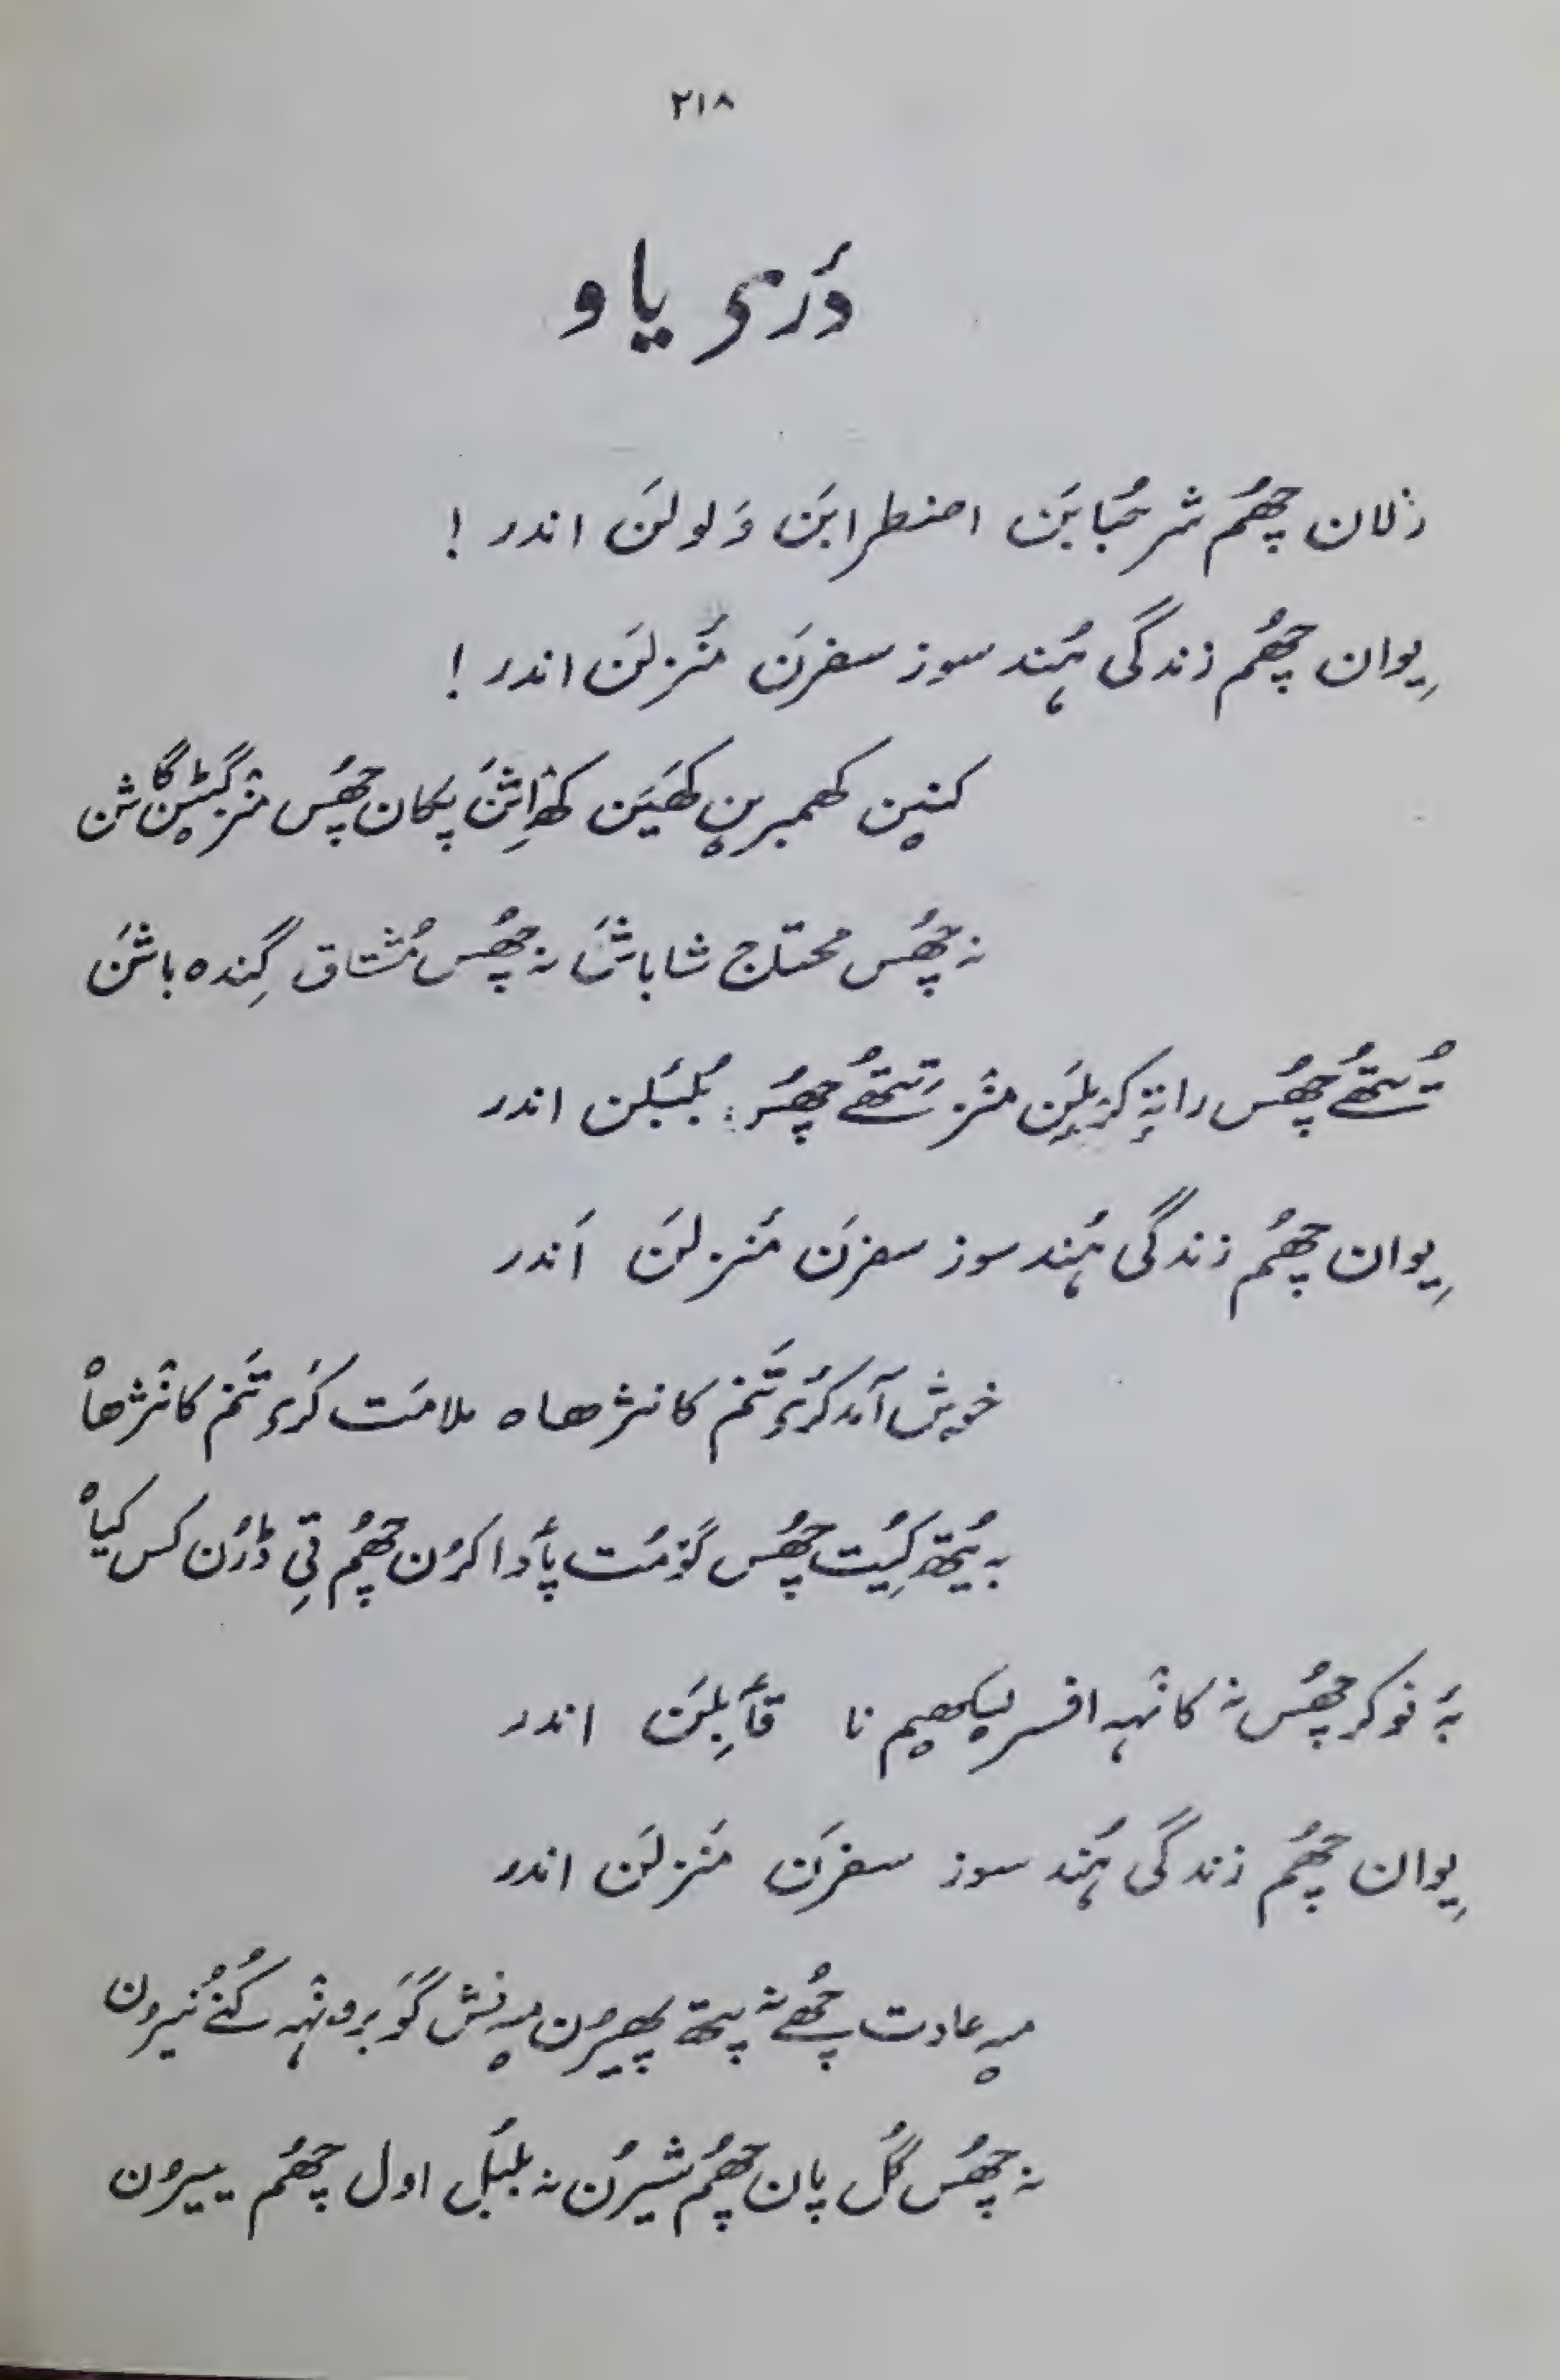 ۲۱۸
دٔری یاو
زلان چھُم شر حُبابَن اضطرابَن وَلولَن اندر !
یِوان چھُم زندگی ہُند سوز سفرَن مَنزلَن اندر !
کنین کھمبرین کھَین پکان چھُس منٛز گٹین گاشن
نہ چھُس محتاج شاباشَن نہ چھُس مُشتاق گِندہ باشَن
تُتھے چھُس منٛز تِتھے چھُس بُلبُلن اندر
یِوان چھُم زندگی ہُند سوز سفرَن مَنزلَن اَندر
خوش آمد کرٕ تَنم کانژھاہ ملامَت کرٕ تَنم کانٛژھاہ
بہ یُتھ کیُت چھُس گوٚمُت پٲدا کرُن چھُم تی ڈرُن کس کیاہ
بہٕ نوکر چھُس نہٕ کانٛہہ افسر لیکھیم نا قٲبِلَن اندر
یِوان چھُم زندگی ہُند سوز سفرَن مَنزلَن اندر
میہ عادت چھُے نہٕ پتھ پھیرُن میہ نش گوٚو برونٛہہ کُنے نیرُن
نہ چھُس گُل پان چھُم شیرُن نہ بلبُل اول چھُم ییرُن